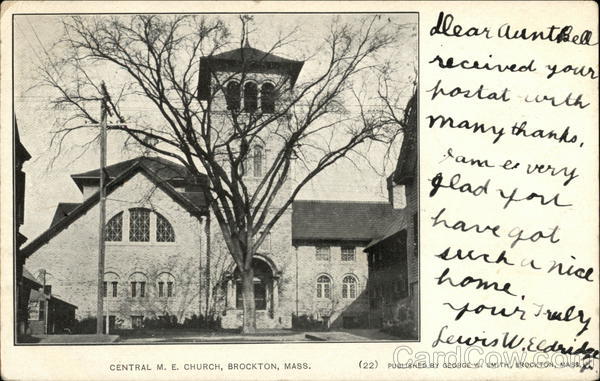 Dear Aunt Bell
received your
postal with
many thanks.
I am ever very
glad you
have got
such a nice
home.
Your Truly
Lewis W. Eldridge
CENTRAL M. E. CHURCH, BROCKTON, MASS.
(22) PUBLISHED BY GEORGE S. SMITH, BROCKTON, MASS.
CardCow.com